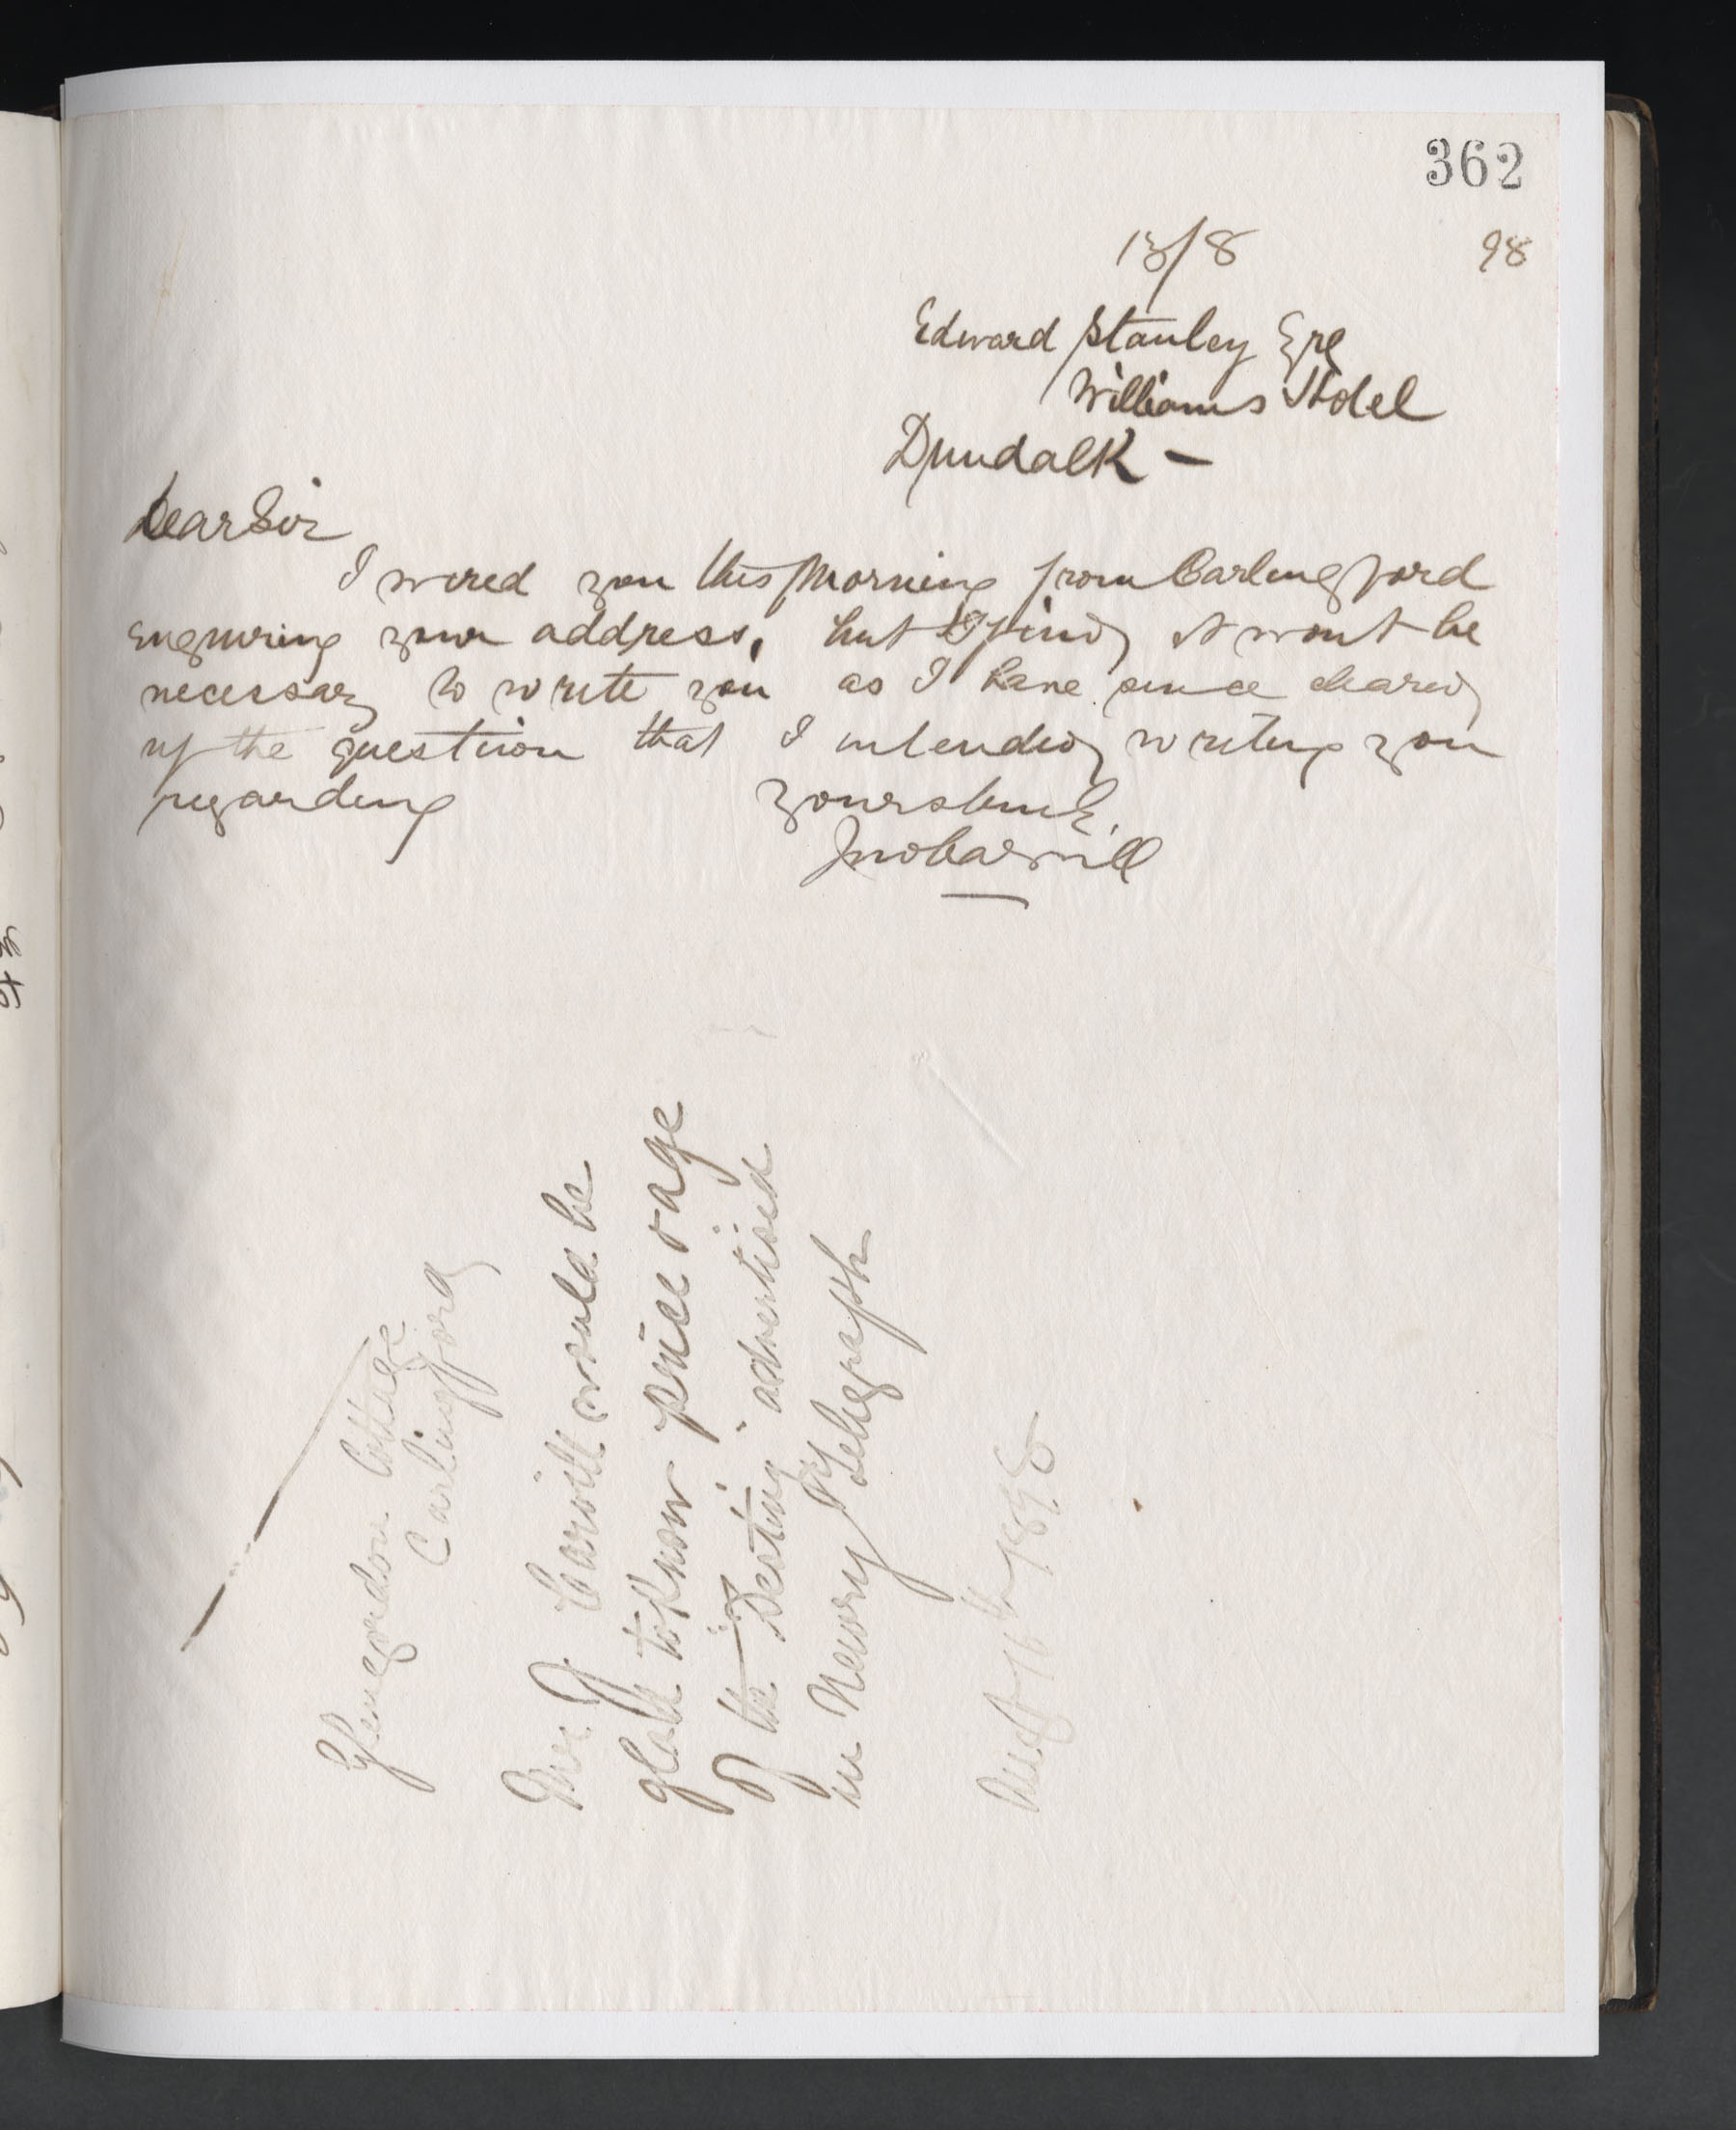 362
13/8 98
Edward Stanley Esq
Williams Hotel
Dundalk -
Dear Sir
I wired you this morning from Carlingford
enquiring your address, but I find it wont be
necessary to write you as I have since cleared
up the question that I intended writing you
regarding Yours truly
Jno Carvill
Glengordon Cottage
Carlingford
Mr J. Carvill would be
glad to know price & age
of the advertised
in Newry Telegraph
Augt 11th 1898